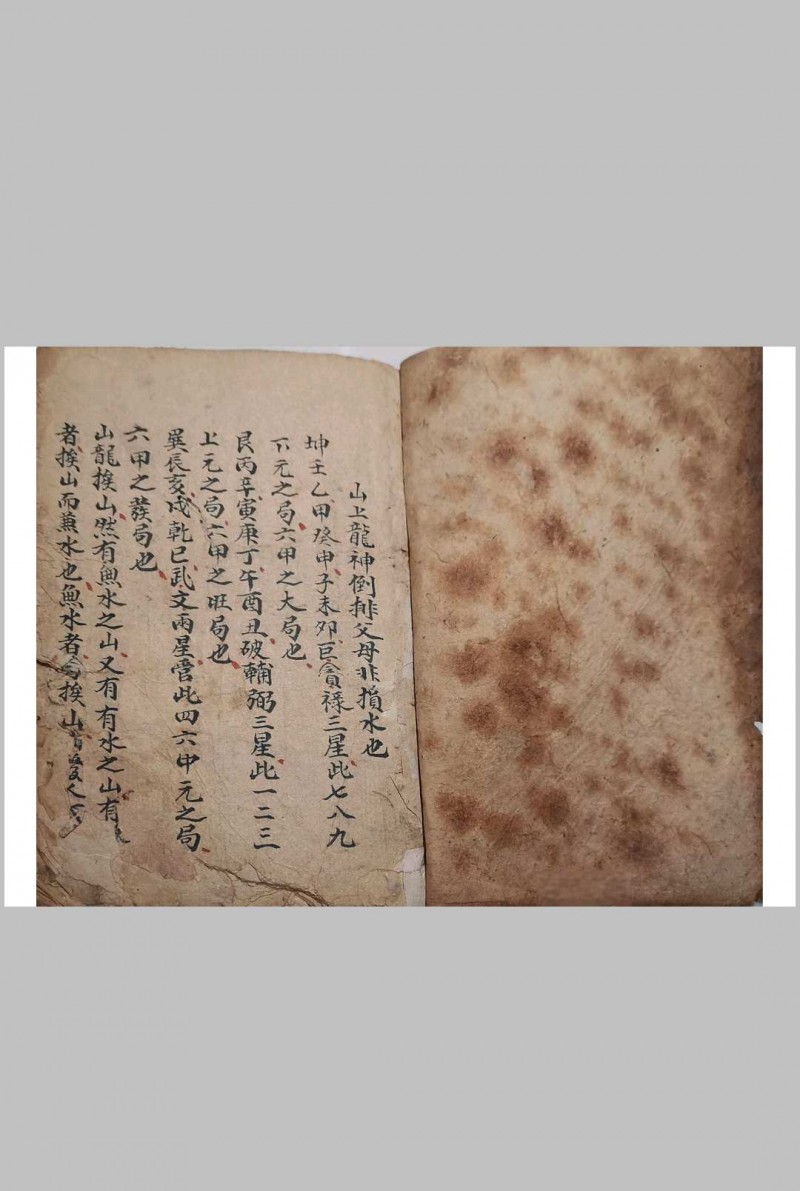 山上龍神倒排父母非損水也
坤壬乙甲癸申子未卯巨貪祿三星此七八九
下元之局六甲之大局也
艮丙辛寅庚丁午酉丑破輔弼三星此一二三
上元之局六甲之旺局也
巽辰亥戌乾巳武文兩星管此四六中元之局
六甲之發局也
山龍挨山然有無水之山又有有水之山有
者挨山而兼水也無水者挨山